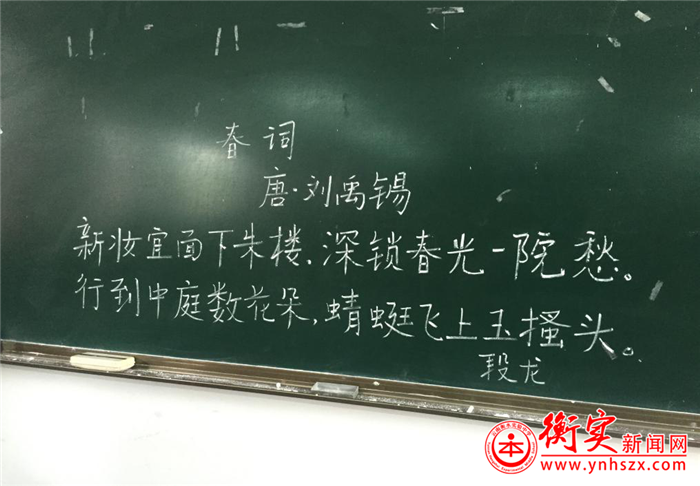 春词
唐·刘禹锡
新妆宜面下朱楼,深锁春光一院愁。
行到中庭数花朵,蜻蜓飞上玉搔头。
段龙
本
衡实新闻网
www.ynhszx.com